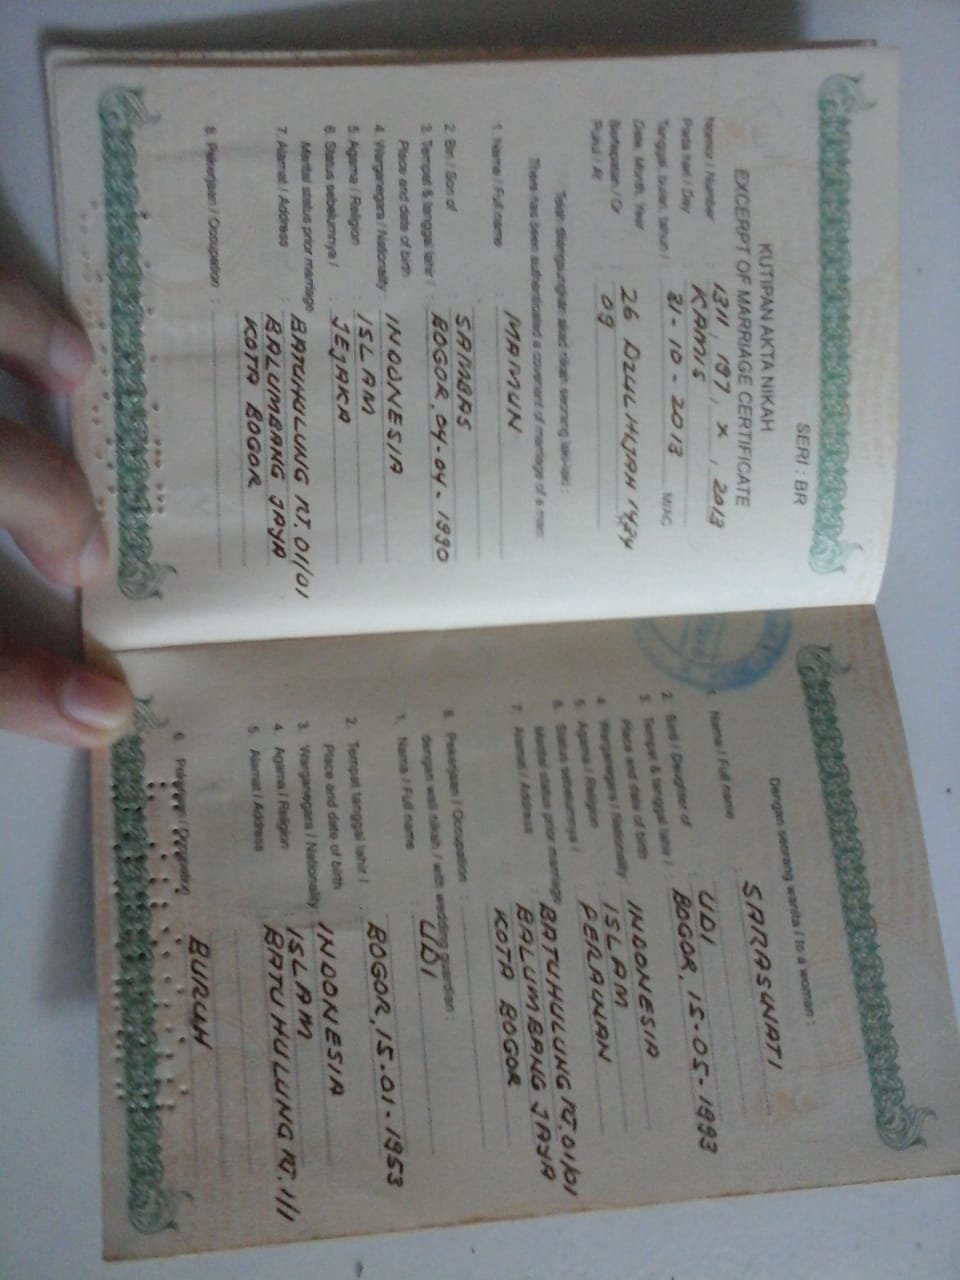 SERI : BR
KUTIPAN AKTA NIKAH
EXCERPT OF MARRIAGE CERTIFICATE
Nomor / Number : 1311, 197, X, 2013
Pada hari / Day : KAMIS
Tanggal, bulan, tahun / : 31-10-2013 M/AC
Date, Month, Year
Bertepatan / Or : 26 DZULHIJAH 1434
Pukul / At : 09
Telah dilangsungkan akad nikah seorang laki-laki :
There has been authenticated a covenant of marriage of a man:
1. Nama / Full name : MAMUN
2. Bin / Son of : SAMBAS
3. Tempat & tanggal lahir / : BOGOR, 04-04-1990
Place and date of birth
4. Warganegara / Nationality : INDONESIA
5. Agama / Religion : ISLAM
6. Status sebelumnya / : JEJAKA
Marital status prior marriage
7. Alamat / Address : BATUHULUNG RT. 01/01
BALUMBANG JAYA
KOTA BOGOR
8. Pekerjaan / Occupation :
Dengan seorang wanita / to a woman :
1. Nama / Full name : SARASWATI
2. Binti / Daughter of : UDI
3. Tempat & tanggal lahir / : BOGOR, 15-05-1993
Place and date of birth
4. Warganegara / Nationality : INDONESIA
5. Agama / Religion : ISLAM
6. Status sebelumnya / : PERAWAN
Marital status prior marriage
7. Alamat / Address : BATUHULUNG RT. 01/01
BALUMBANG JAYA
KOTA BOGOR
8. Pekerjaan / Occupation :
dengan wali nikah / with wedding guardian :
1. Nama / Full name : UDI
2. Tempat tanggal lahir / : BOGOR, 15-01-1953
Place and date of birth
3. Warganegara / Nationality : INDONESIA
4. Agama / Religion : ISLAM
5. Alamat / Address : BATU HULUNG RT. 1/1
6. Pekerjaan / Occupation : BURUH